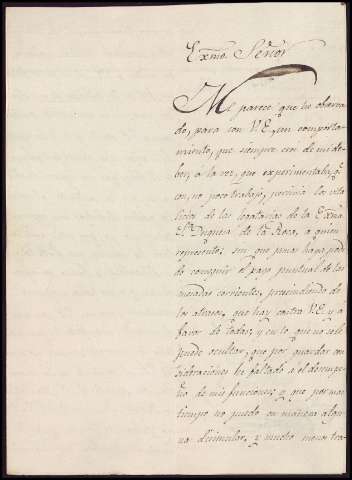 Exmo. Señor
Me parece que he observa
do, para con V.E., un comporta
miento, que siempre creí de mi de
ber, a la vez, que experimentaba, q.e
con, no poco trabajo, percivia los vita
licios de las legatarias de la Exma
S.ra Duquesa de la Roca, a quien
represento; sin que jamas haya podi
do conseguir el pago puntual de las
mesadas corrientes, prescindiendo de
los atrasos, que hay contra V.E. y a
favor de todas; y en lo que no se le
puede ocultar, que por guardar con
sideraciones he faltado a el desempe
ño de mis funciones; y que por mas
tiempo no puedo en manera algu
na disimular, y mucho menos tra